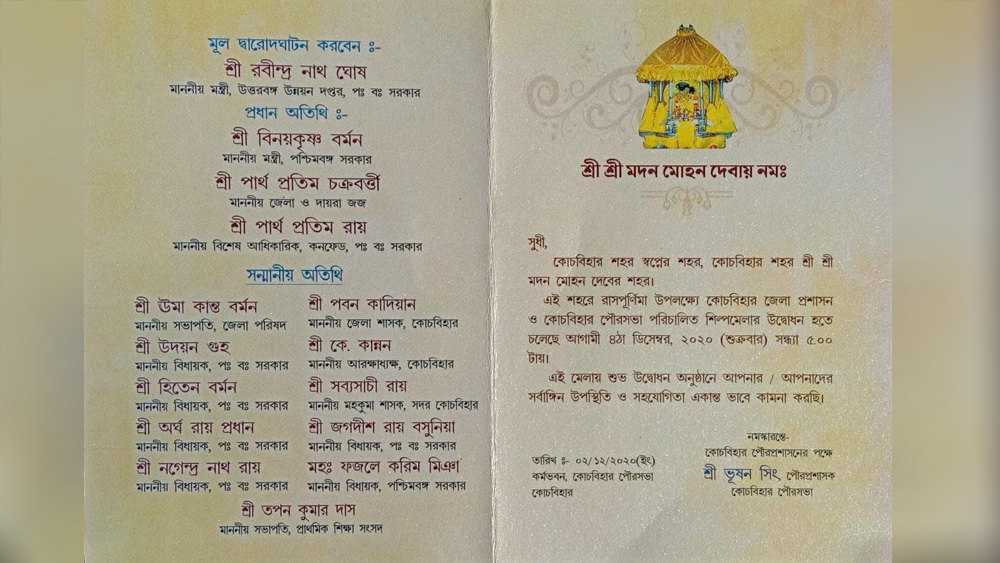 মূল দ্বারোদঘাটন করবেন ঃ-
শ্রী রবীন্দ্র নাথ ঘোষ
মাননীয় মন্ত্রী, উত্তরবঙ্গ উন্নয়ন দপ্তর, পঃ বঃ সরকার
প্রধান অতিথি ঃ-
শ্রী বিনয়কৃষ্ণ বর্মন
মাননীয় মন্ত্রী, পশ্চিমবঙ্গ সরকার
শ্রী পার্থ প্রতিম চক্রবর্ত্তী
মাননীয় জেলা ও দায়রা জজ
শ্রী পার্থ প্রতিম রায়
মাননীয় বিশেষ আধিকারিক, কনফেড, পঃ বঃ সরকার
সন্মানীয় অতিথি
শ্রী ঊমা কান্ত বর্মন
মাননীয় সভাপতি, জেলা পরিষদ
শ্রী উদয়ন গুহ
মাননীয় বিধায়ক, পঃ বঃ সরকার
শ্রী হিতেন বর্মন
মাননীয় বিধায়ক, পঃ বঃ সরকার
শ্রী অর্ঘ রায় প্রধান
মাননীয় বিধায়ক, পঃ বঃ সরকার
শ্রী নগেন্দ্র নাথ রায়
মাননীয় বিধায়ক, পঃ বঃ সরকার
শ্রী পবন কাদিয়ান
মাননীয় জেলা শাসক, কোচবিহার
শ্রী কে. কান্নন
মাননীয় আরক্ষাধ্যক্ষ, কোচবিহার
শ্রী সব্যসাচী রায়
মাননীয় মহকুমা শাসক, সদর কোচবিহার
শ্রী জগদীশ রায় বসুনিয়া
মাননীয় বিধায়ক, পঃ বঃ সরকার
মহঃ ফজলে করিম মিঞা
মাননীয় বিধায়ক, পশ্চিমবঙ্গ সরকার
শ্রী তপন কুমার দাস
মাননীয় সভাপতি, প্রাথমিক শিক্ষা সংসদ
শ্রী শ্রী মদন মোহন দেবায় নমঃ
সুধী,
কোচবিহার শহর স্বপ্নের শহর, কোচবিহার শহর শ্রী শ্রী
মদন মোহন দেবের শহর।
এই শহরে রাসপূর্ণিমা উপলক্ষ্যে কোচবিহার জেলা প্রশাসন
ও কোচবিহার পৌরসভা পরিচালিত শিল্পমেলার উদ্বোধন হতে
চলেছে আগামী ৪ঠা ডিসেম্বর, ২০২০ (শুক্রবার) সন্ধ্যা ৫.০০
টায়।
এই মেলায় শুভ উদ্বোধন অনুষ্ঠানে আপনার / আপনাদের
সর্বাঙ্গিন উপস্থিতি ও সহযোগিতা একান্ত ভাবে কামনা করছি।
নমস্কারন্তে-
কোচবিহার পৌরপ্রশাসনের পক্ষে
শ্রী ভূষন সিং, পৌরপ্রশাসক
কোচবিহার পৌরসভা
তারিখ ঃ- ০২/১২/২০২০(ইং)
কর্মভবন, কোচবিহার পৌরসভা
কোচবিহার